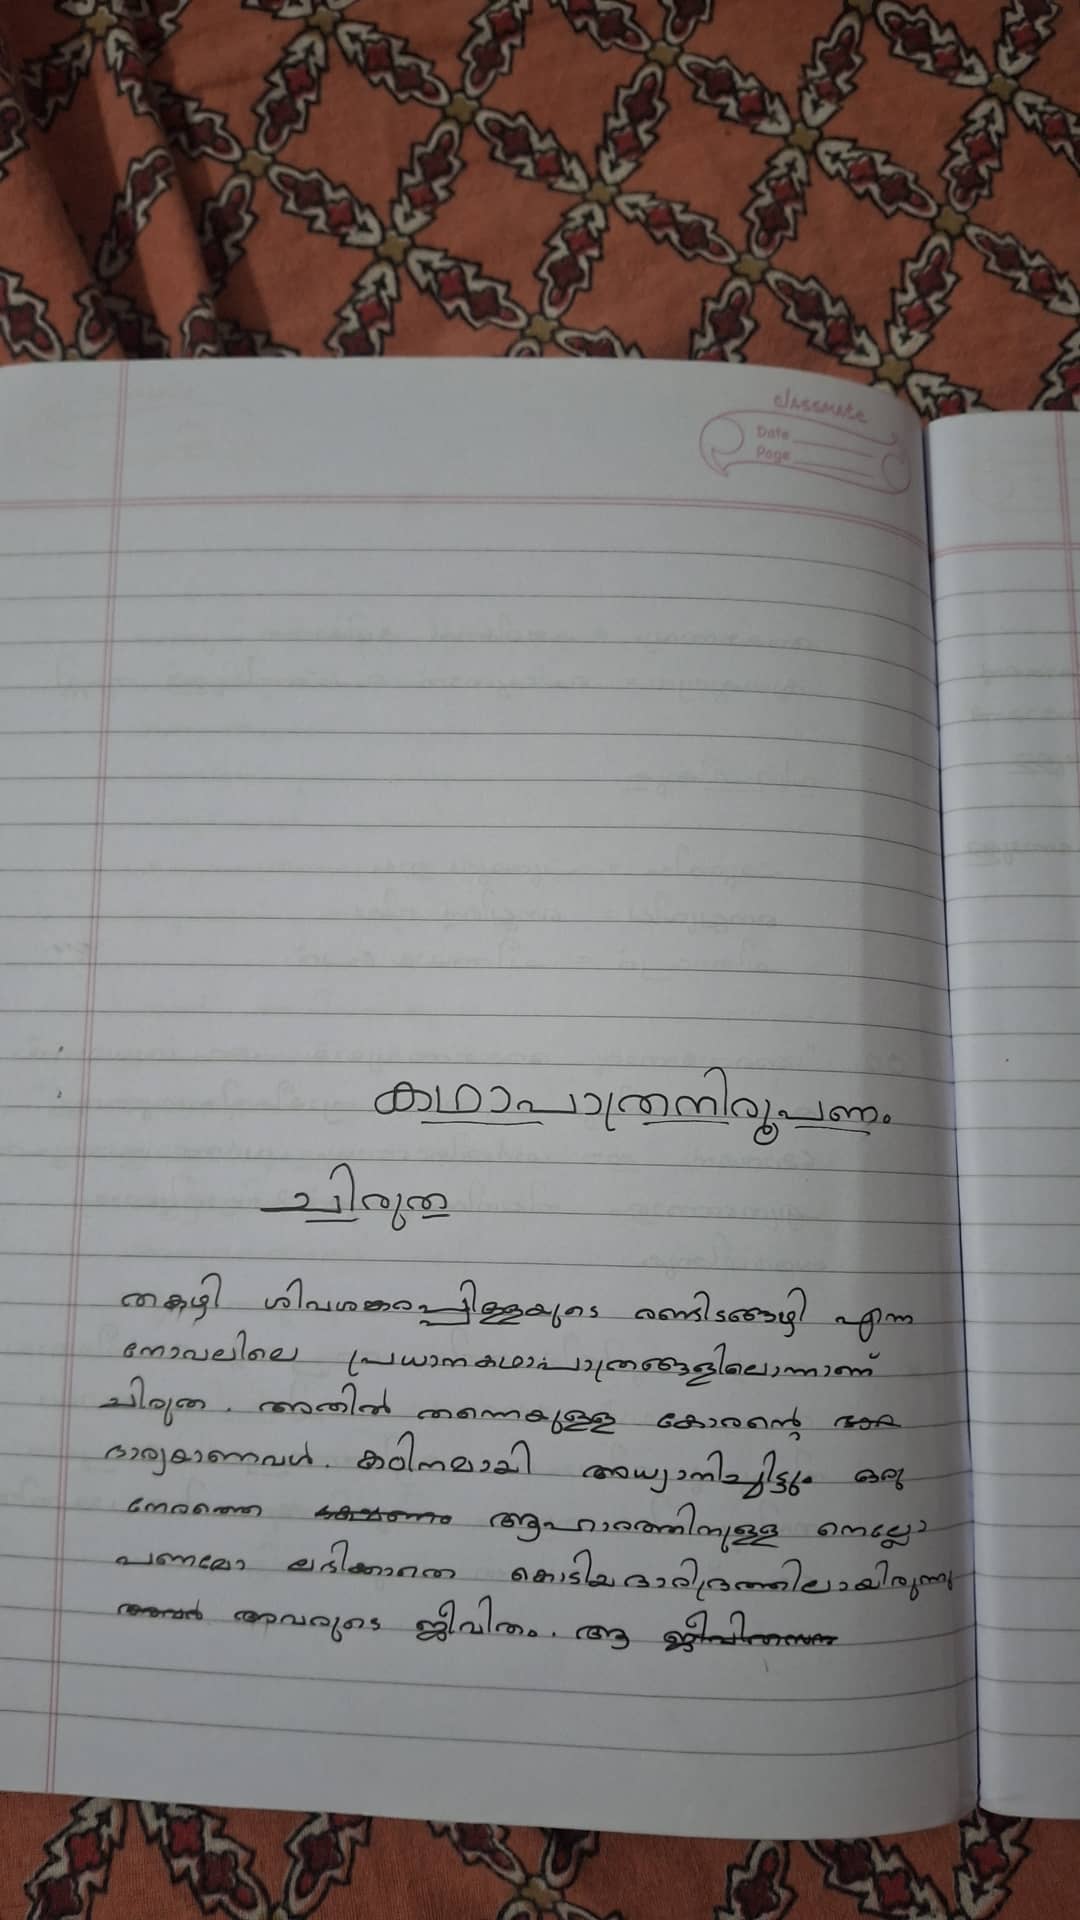 classmate
Date
Page
കഥാപാത്രനിരൂപണം
ചിരുത
തകഴി ശിവശങ്കരപ്പിള്ളയുടെ രണ്ടിടങ്ങഴി എന്ന
നോവലിലെ പ്രധാനകഥാപാത്രങ്ങളിലൊന്നാണ്
ചിരുത. അതിൽ തന്നെയുള്ള കോരന്റെ
ഭാര്യയാണവൾ. കഠിനമായി അധ്വാനിച്ചിട്ടും ഒരു
നേരത്തെ ആഹാരത്തിനുള്ള നെല്ലോ
പണമോ ലഭിക്കാതെ കൊടിയദാരിദ്ര്യത്തിലായിരുന്നു
അവരുടെ ജീവിതം. ആ